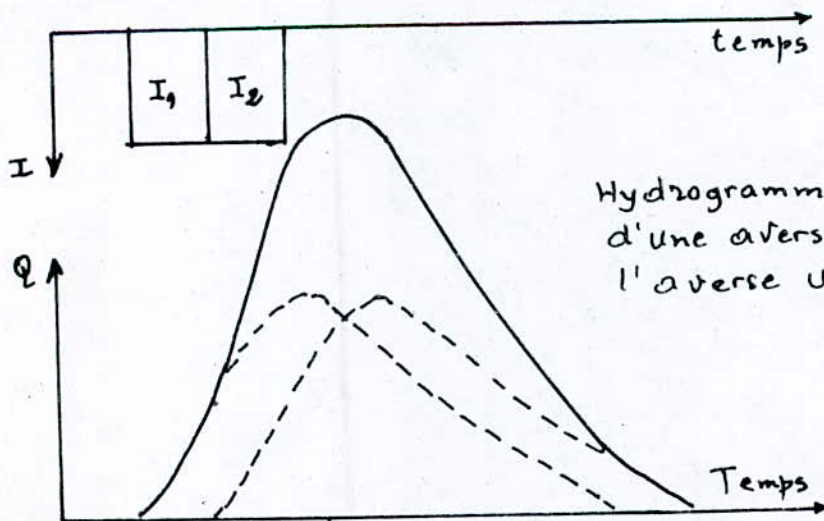 temps
I₁ I₂
I
Hydrogramm
d'une avers
l'averse u
Q
Temps